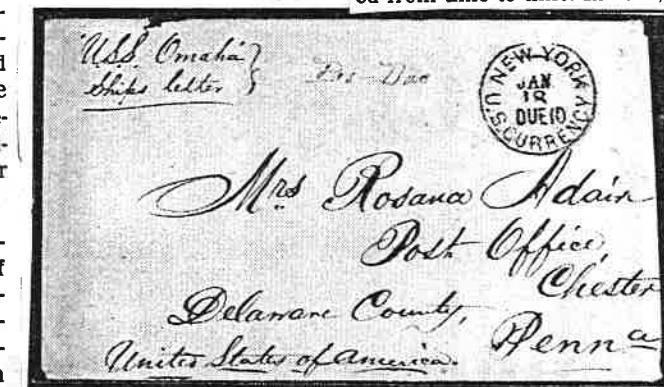 U.S.S. Omaha
Ships letter
NEW YORK
JAN
18
DUE 10
U.S. CURRENCY
Mrs Rosana Adair
Post Office,
Chester
Delaware County,
Penna
United States of America.